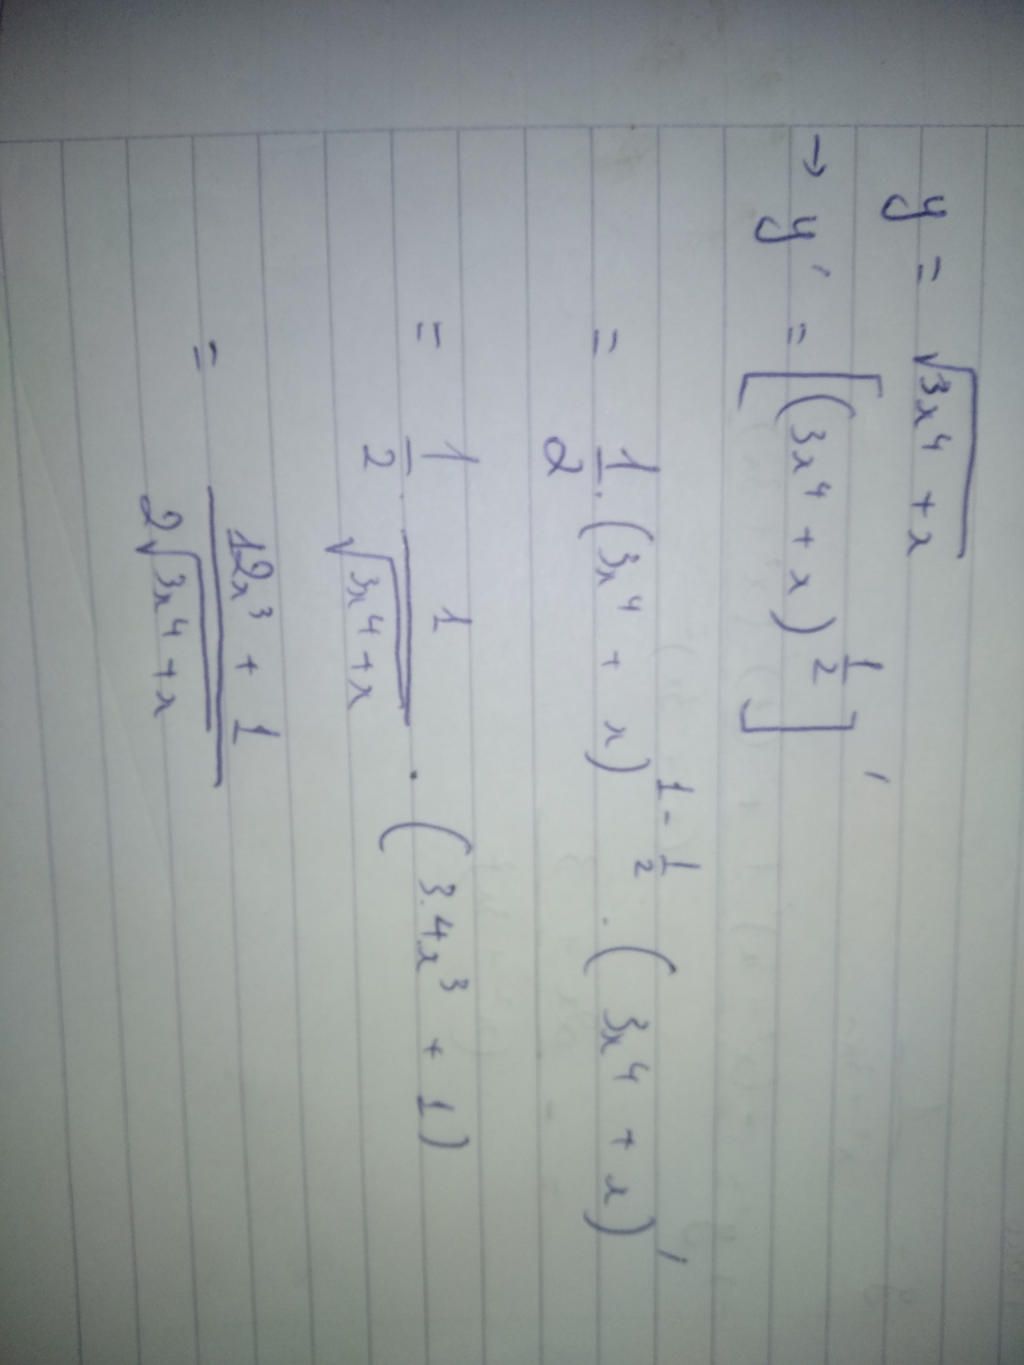 y = √(3x⁴ + x)
→ y' = [(3x⁴ + x)^(1/2)]'
= 1/2 . (3x⁴ + x)^(1 - 1/2) . (3x⁴ + x)'
= 1/2 . 1/√(3x⁴ + x) . (3.4x³ + 1)
= (12x³ + 1)/(2√(3x⁴ + x))